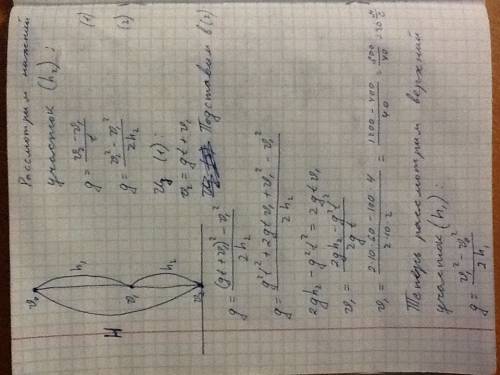 v₀
h₁
H
v₁
h₂
v₂
Рассмотрим нижний
участок (h₂):
g = (v₂ - v₁)/t (1)
g = (v₂² - v₁²)/2h₂ (2)
Из (1):
v₂ = gt + v₁ Подставим в (2)
g = ((gt + v₁)² - v₁²)/2h₂
g = (g²t² + 2gtv₁ + v₁² - v₁²)/2h₂
2gh₂ - g²t² = 2gtv₁
v₁ = (2gh₂ - g²t²)/2gt
v₁ = (2·10·60 - 100·4)/(2·10·2) = (1200 - 400)/40 = 800/40 = 20 м/с
Теперь рассмотрим верхний
участок (h₁):
g = (v₁² - v₀²)/2h₁